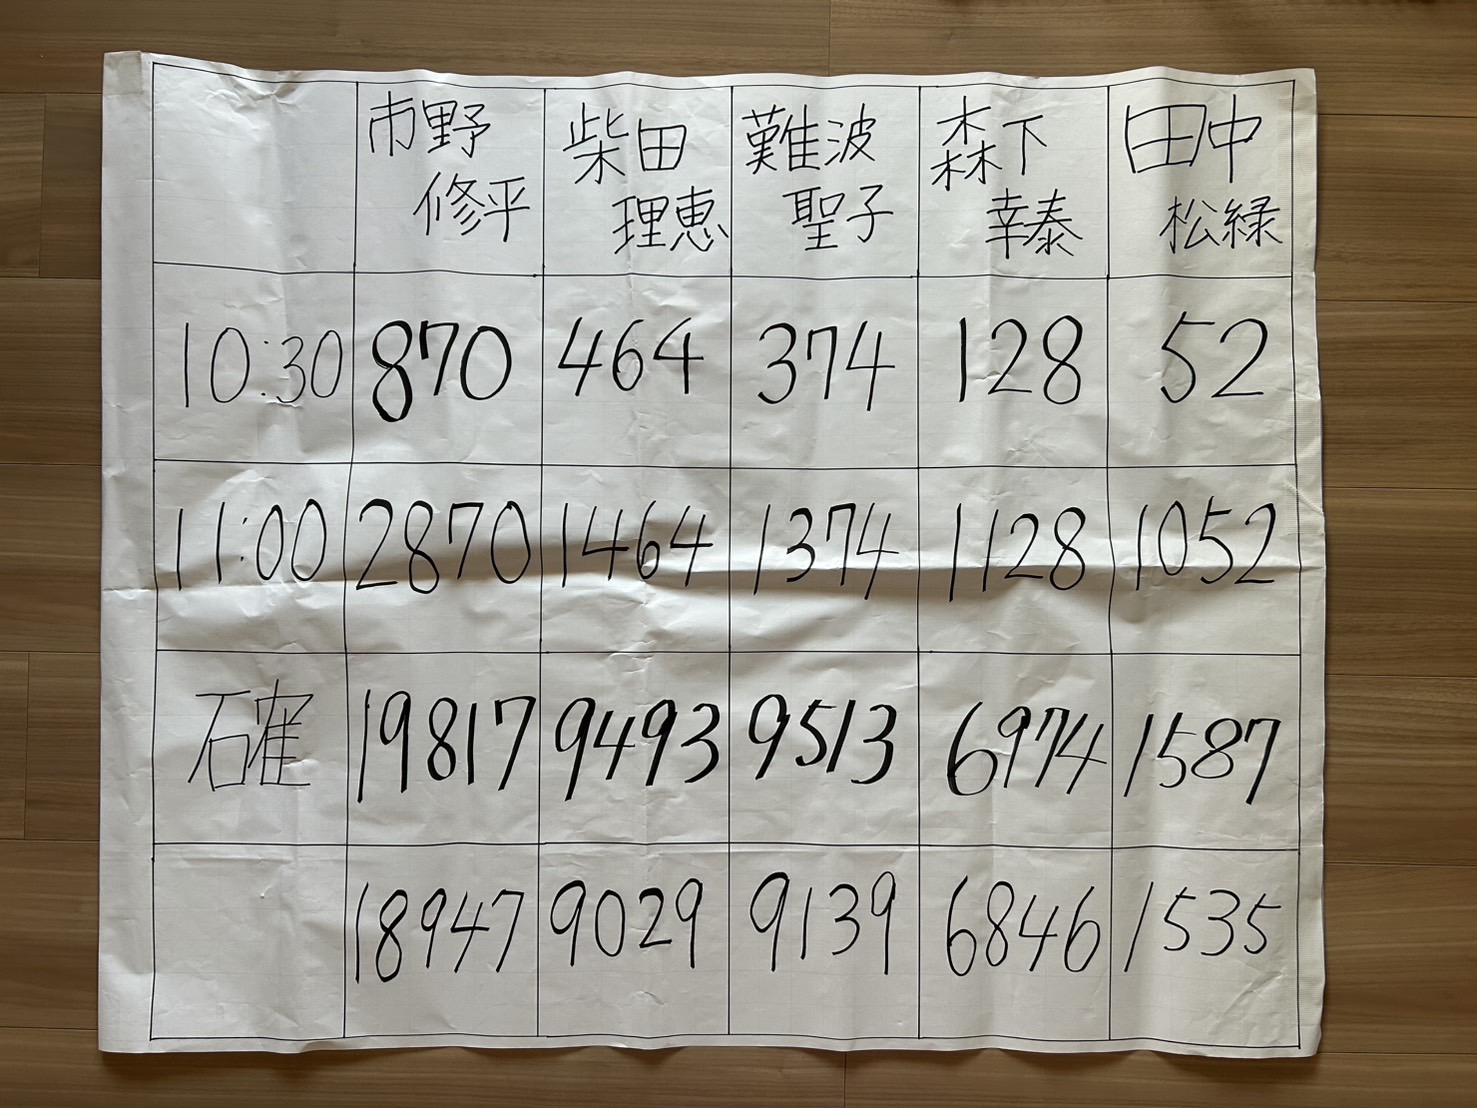 市野 柴田 難波 森下 田中
修平 理恵 聖子 幸泰 松緑
10:30 870 464 374 128 52
11:00 2870 1464 1374 1128 1052
確 19817 9493 9513 6974 1587
18947 9029 9139 6846 1535